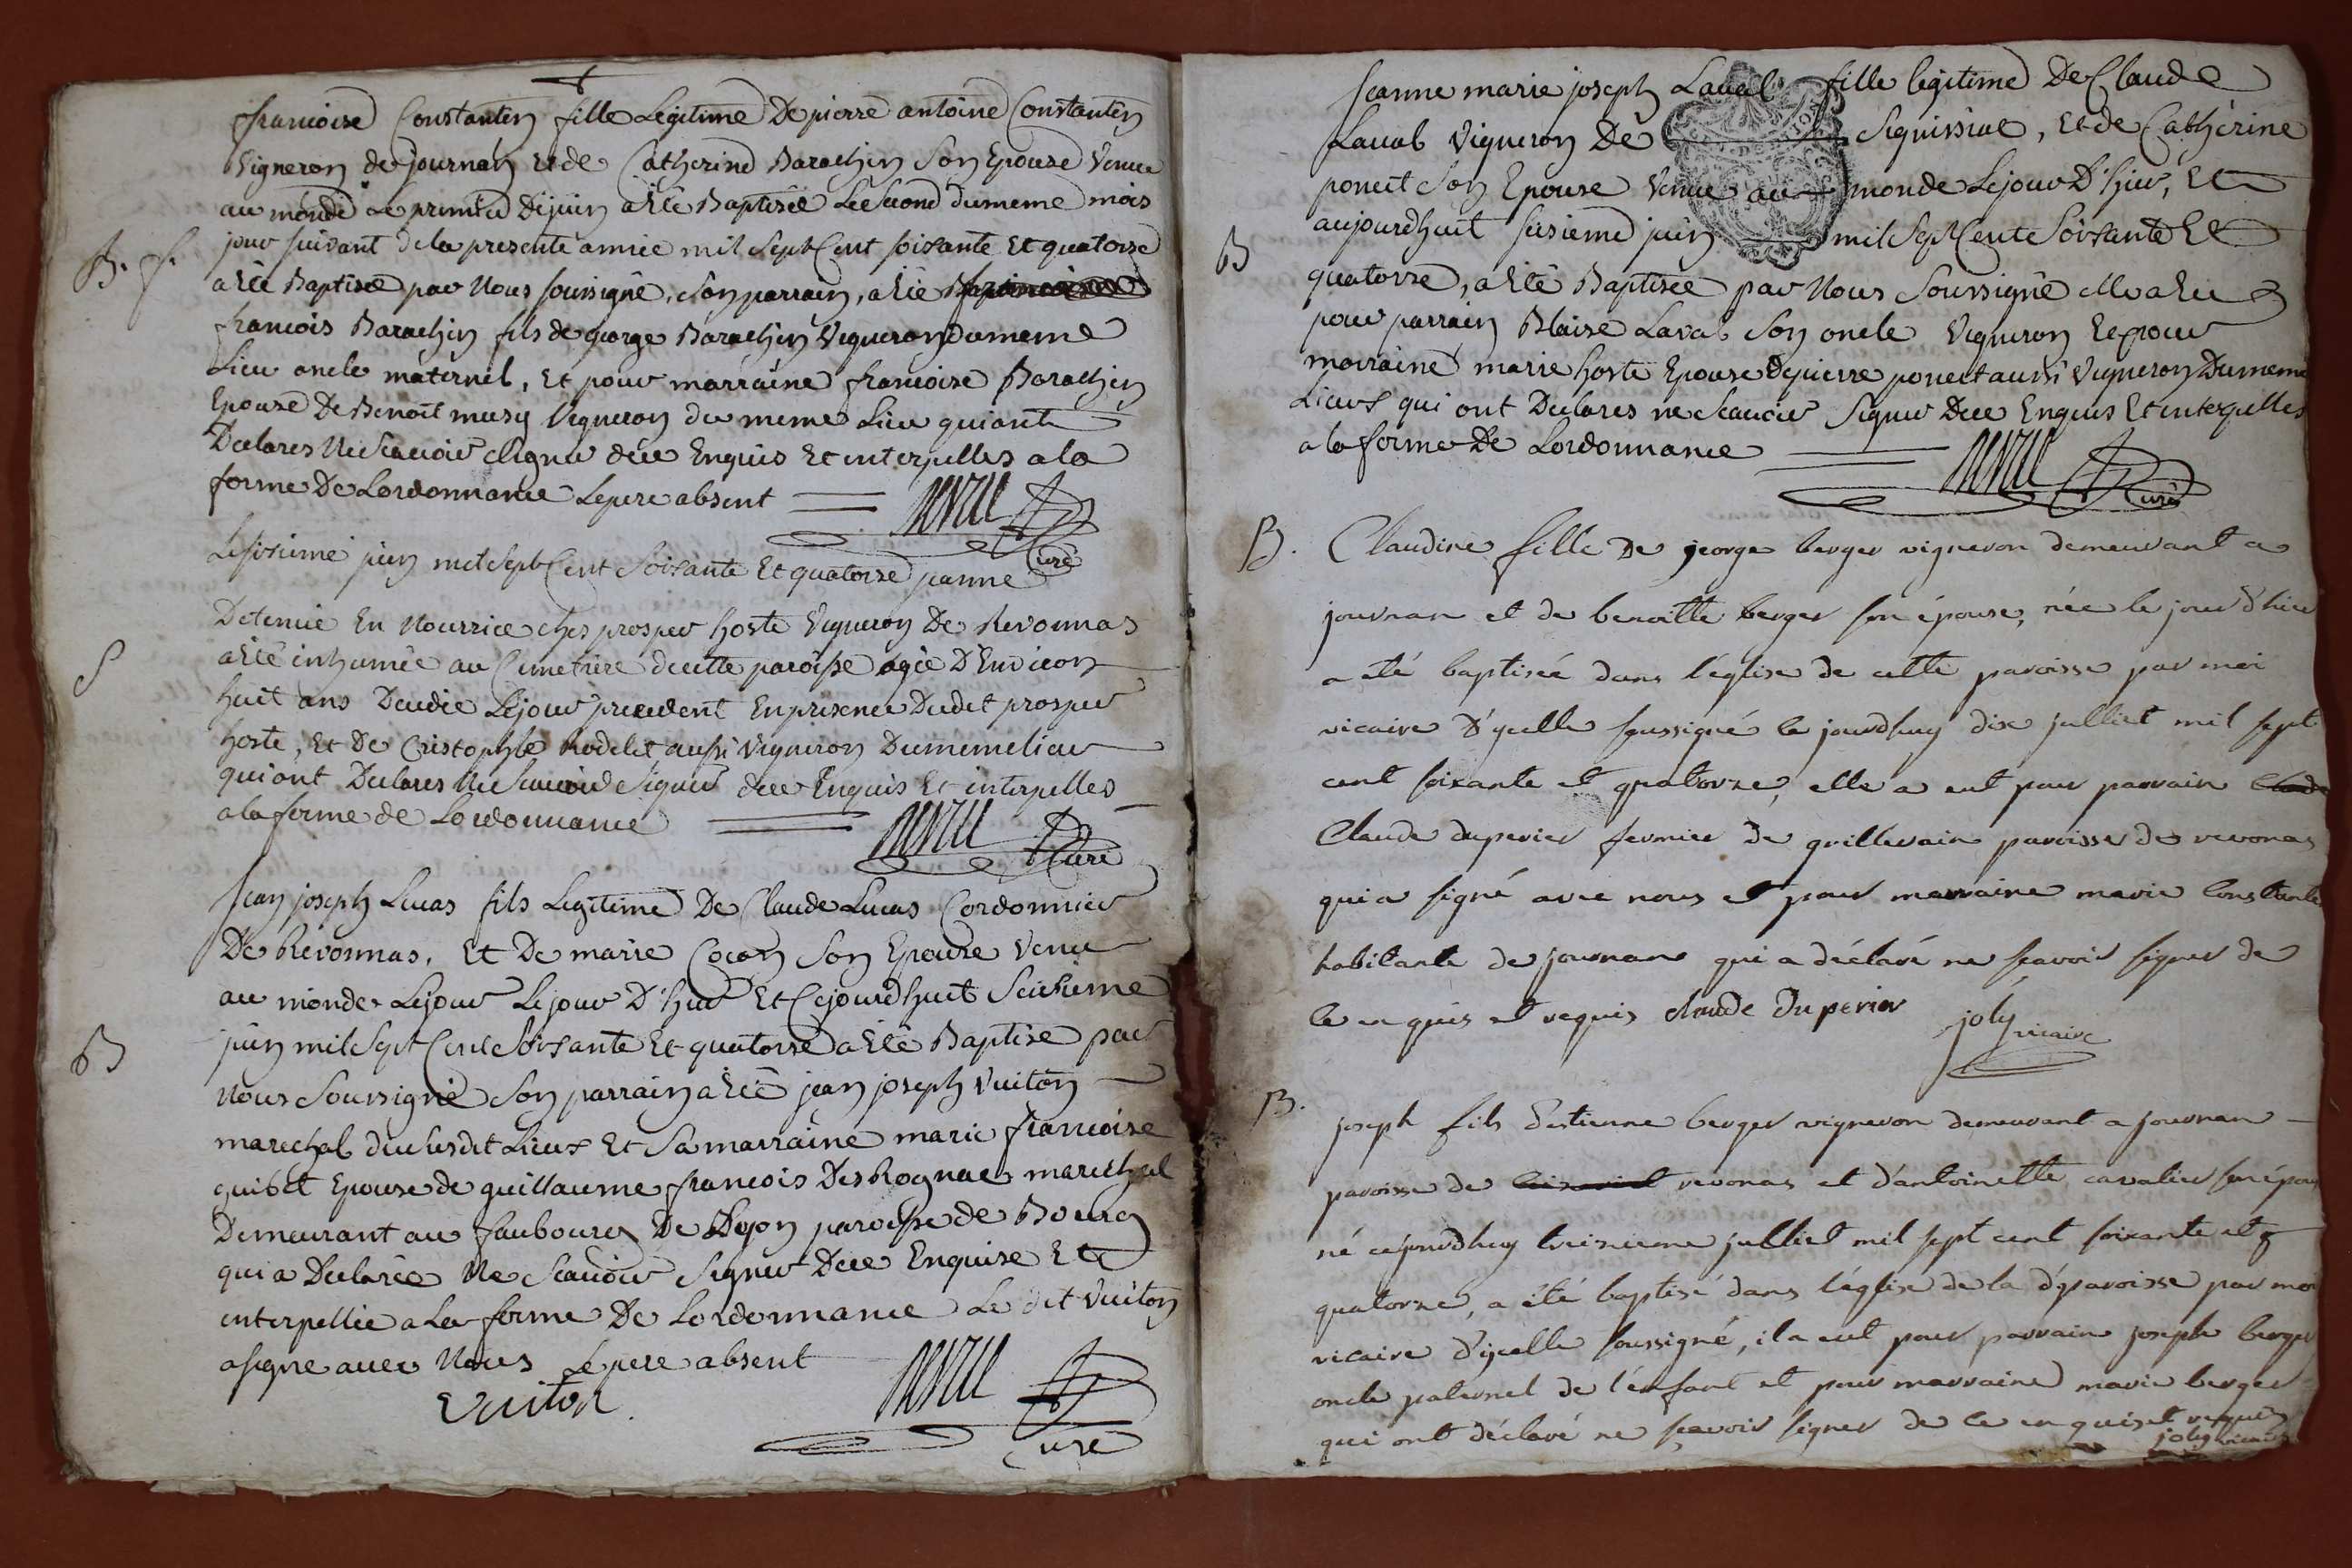 francoise Constantin fille Legitime De pierre antoine Constantin
Vigneron de journan et de Catherine Barachin Son Epouse Venue
au monde Le premier De juin a Eté Baptisée Le Second du meme mois
jour suivant de la presente année mil Sept Cent soixante Et quatorse
B. f.
a Eté Baptisée par Nous soussigné, Son parrain, a Eté
francois Barachin fils de george Barachin Vigneron du meme
Lieu oncle maternel, Et pour marraine francoise Barachin
Epouse De Benoit musy Vigneron du meme Lieu qui ont
Declares Ne Scavoir Signer dece Enquis Et interpelles a la
forme De Lordonnance Le pere absent
Curé
Le sixieme juin mil Sept Cent Soixante Et quatorse jeanne
Detenue En Nourrice ches prosper hoste Vigneron De Revonnas
S
a Eté inhumée au Cimetiere de cette paroisse agée D'Environ
huit ans Decedée Le jour precedent En presence Dudet prosper
hoste, Et De Cristophle Rodelet aussi Vigneron Du meme lieu
qui ont Declares Ne Scavoir Signer dece Enquis Et interpelles
a la forme de Lordonnance
Curé
Jean joseph Lucas fils Legitime De Claude Lucas Cordonnier
De Revonnas, Et De marie Cocon Son Epouse Venu
au monde Le jour Le jour D'hier Et Cejourdhuit Seisieme
B
juin mil Sept Cent Soixante Et quatorse a Eté Baptise par
Nous Soussigné Son parrain a Eté jean joseph Vuiton
marechal du susdit Lieux Et Sa marraine marie francoise
guibet Epouse de guillaume francois Des Rognac marechal
Demeurant au faubourg De Lyon paroisse de Bourg
qui a Declarée Ne Scavoir Signer Dece Enquise Et
interpellée a La forme De Lordonnance Le dit Vuiton
a signe avec Nous Le pere absent
Vuiton
Curé
Jeanne marie joseph Laval fille legitime De Claude
Laval Vigneron De Et de Catherine
ponect Son Epouse Venue au monde Le jour D'hier, Et
aujourdhuit sixieme juin mil Sept Cent Soixante Et
B
quatorse, a Eté Baptisée par Nous Soussigné Elle a Eu
pour parrain Blaise Laval Son oncle Vigneron Et pour
marraine marie hoste Epouse De pierre ponect aussi Vigneron Du meme
Lieux qui ont Declares ne Scavoir Signer Dece Enquis Et interpelles
a la forme De Lordonnance
Curé
B. Claudine fille De george berger vigneron demeurant a
journan et de benoitte berger son épouse, née le jour d'hier
a été baptisée dans l'église de cette paroisse par moi
vicaire d'ycelle soussigné le jourdhuy dix julliet mil sept
cent soixante et quatorze, elle a eut pour parrain Claude
Claude duperier fermier de grillerain paroisse de revonas
qui a signé avec nous et pour marraine marie Constantin
habitante de journan qui a déclaré ne sçavoir signer de
ce enquis et requis claude Duperier joly vicaire
B.
joseph fils d'estienne berger vigneron demeurant a journan
paroisse de revonas et d'antoinette cavalier son épouse
né cejourdhuy treizieme julliet mil sept cent soixante et
quatorze, a été baptisé dans l'église de la d. paroisse par moi
vicaire d'ycelle soussigné, il a eut pour parrain joseph berger
oncle paternel de l'enfant et pour marraine marie berger
qui ont déclaré ne sçavoir signer de ce enquis et requis
joly vicaire